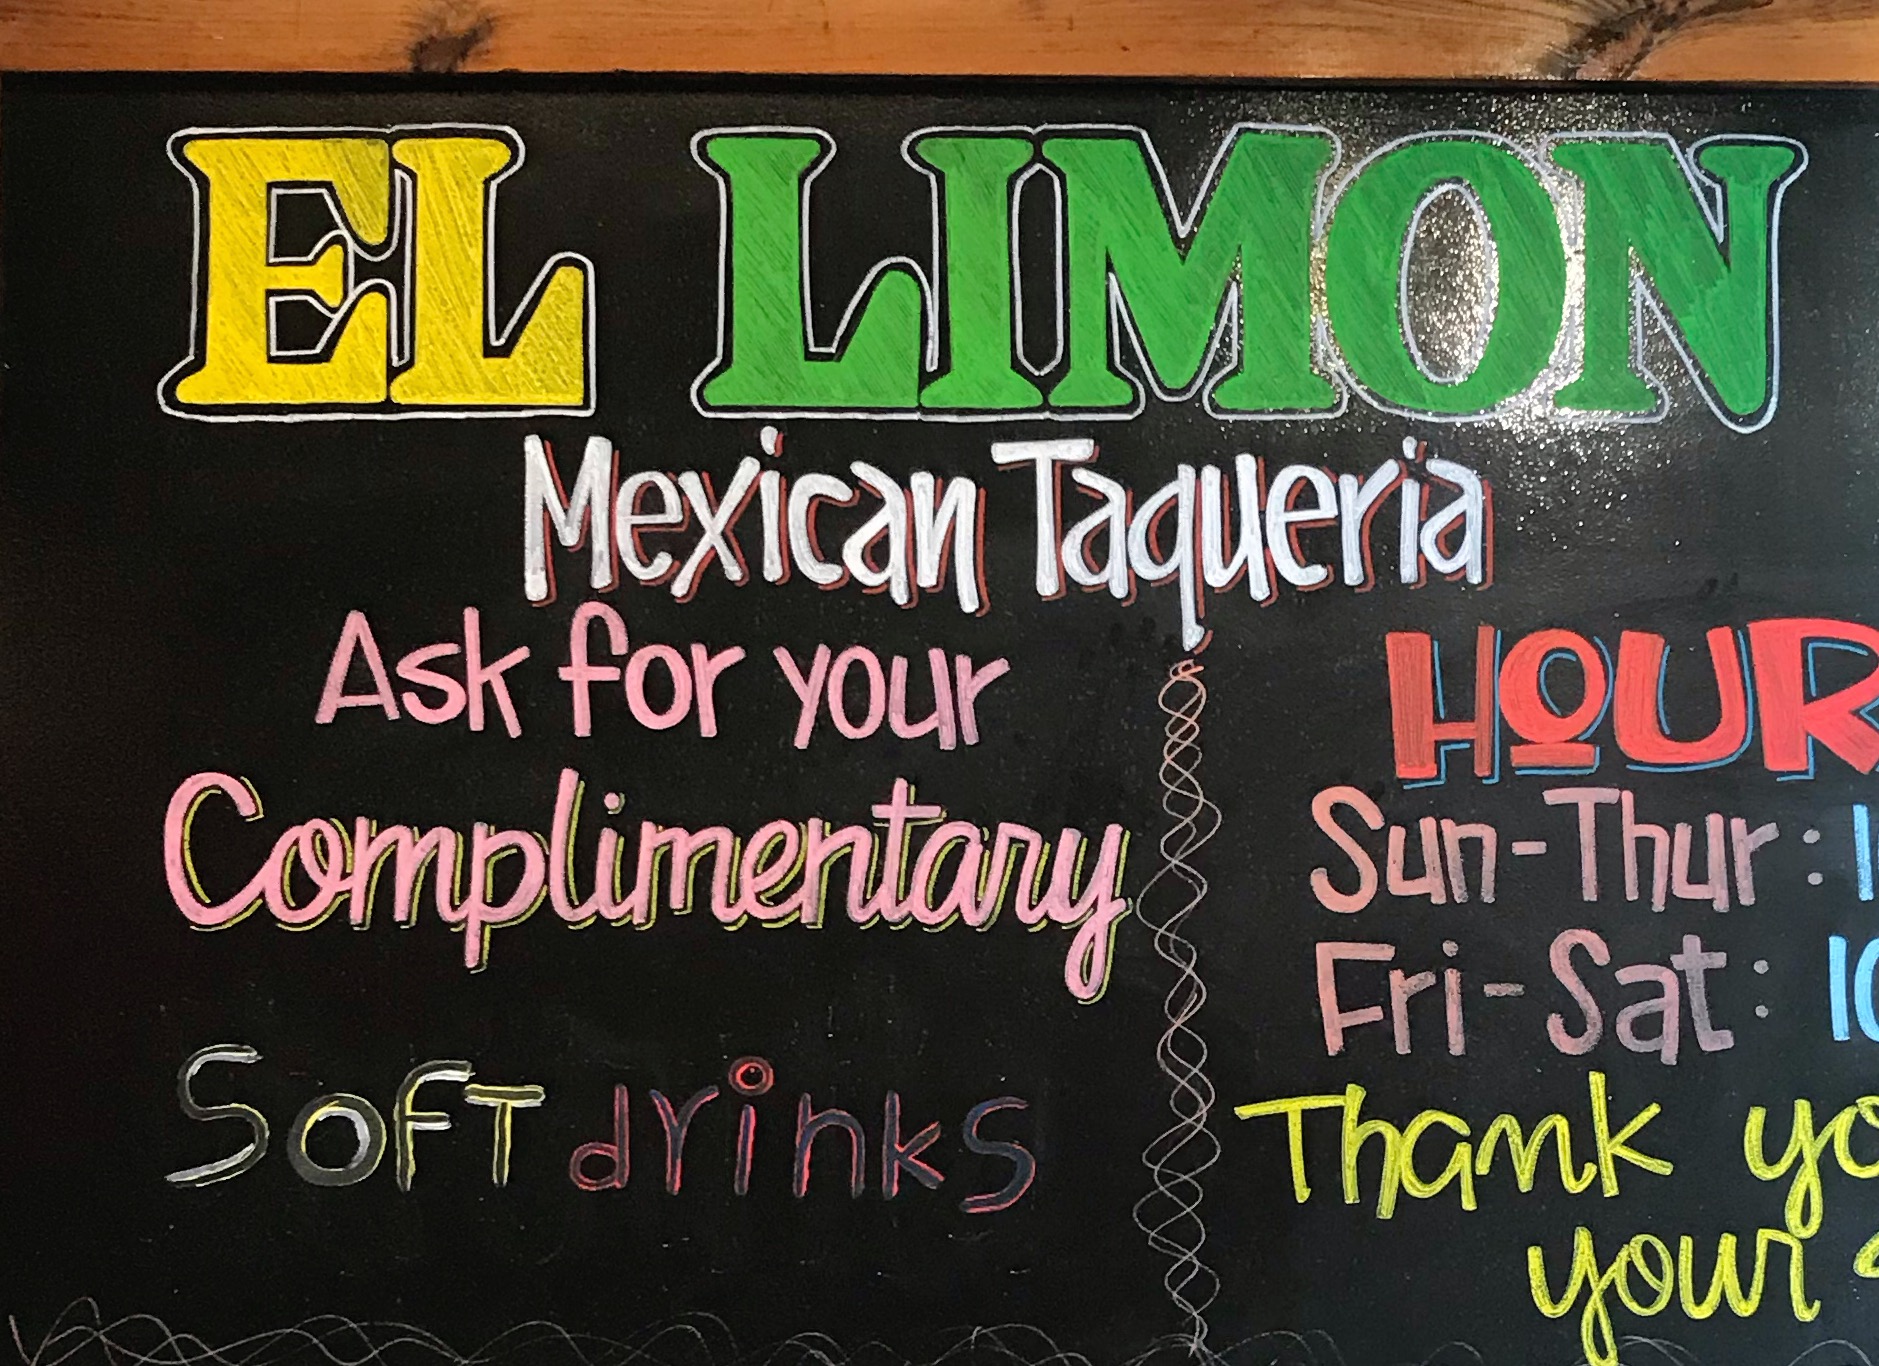 EL LIMON
Mexican Taqueria
Ask for your
Complimentary
Soft drinks
HOUR
Sun-Thur:
Fri-Sat: 10
Thank yo
your